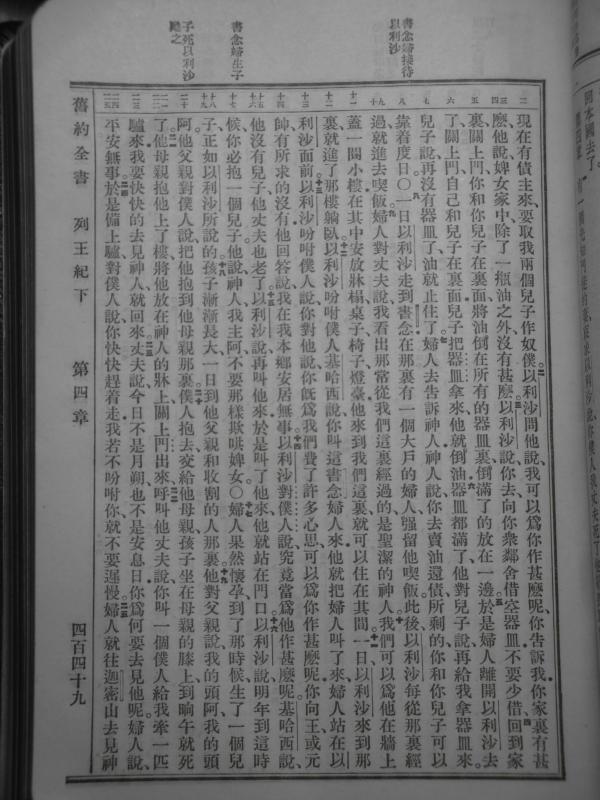 書念婦接待
以利沙
書念婦生子
子死以利沙
起之
現在有債主來、要取我兩個兒子作奴僕、以利沙問他說、我可以爲你作甚麽呢、你告訴我、你家裏有甚
麽、他說、婢女家中除了一瓶油之外、沒有甚麽、以利沙說、你去向你衆鄰舍借空器皿、不要少借、回到家
裏、關上門、你和你兒子在裏面、將油倒在所有的器皿裏、倒滿了的放在一邊、於是婦人離開以利沙去
了、關上門、自己和兒子在裏面、兒子把器皿拿來、他就倒油、器皿都滿了、他對兒子說、再給我拿器皿來、
兒子說、再沒有器皿了、油就止住了、婦人去告訴神人、神人說、你去賣油還債、所剩的你和你兒子可以
靠着度日、〇一日以利沙走到書念、在那裏有一個大戶的婦人、强留他喫飯、此後以利沙每從那裏經
過、就進去喫飯、婦人對丈夫說、我看出那常從我們這裏經過的是聖潔的神人、我們可以爲他在牆上
蓋一間小樓、在其中安放牀榻、桌子、椅子、燈臺、他來到我們這裏、就可以住在其間、一日以利沙來到那
裏、就進了那樓躺臥、以利沙吩咐僕人基哈西說、你叫這書念婦人來、他就把婦人叫了來、婦人站在以
利沙面前、以利沙吩咐僕人說、你對他說、你旣爲我們費了許多心思、可以爲你作甚麽呢、你向王或元
帥有所求的沒有、他回答說、我在我本鄉安居無事、以利沙對僕人說、究竟當爲他作甚麽呢、基哈西說、
他沒有兒子、他丈夫也老了、以利沙說、再叫他來、於是叫了他來、他就站在門口、以利沙說、明年到這時
候、你必抱一個兒子、他說、神人我主阿、不要那樣欺哄婢女、〇婦人果然懷孕、到了那時候、生了一個兒
子、正如以利沙所說的、孩子漸漸長大、一日到他父親和收割的人那裏、他對父親說、我的頭阿、我的頭
阿、他父親對僕人說、把他抱到他母親那裏、僕人抱去交給他母親、孩子坐在母親的膝上、到晌午就死
了、他母親抱他上了樓、將他放在神人的牀上、關上門出來、呼叫他丈夫說、你叫一個僕人給我牽一匹
驢來、我要快快的去見神人、就回來、丈夫說、今日不是月朔、也不是安息日、你爲何要去見他呢、婦人說、
平安無事、於是備上驢、對僕人說、你快快趕着走、我若不吩咐你、就不要遲慢、婦人就往迦密山去見神
舊約全書 列王紀下 第四章 四百四十九